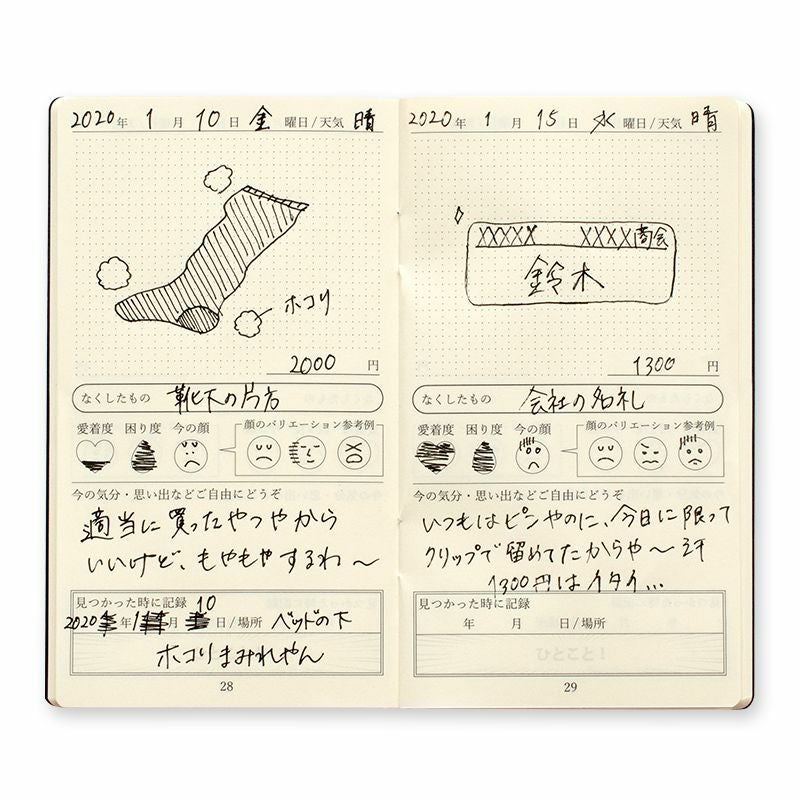 2020年 1月 10日 金 曜日/天気 晴
ホコリ
2000 円
なくしたもの 靴下の片方
愛着度 困り度 今の顔 顔のバリエーション参考例
今の気分・思い出などご自由にどうぞ
適当に買ったやつやから
いいけど、もやもやするわ〜
見つかった時に記録 10
2020年 1月 日/場所 ベッドの下
ホコリまみれやん
28
2020年 1月 15日 水 曜日/天気 晴
XXXXX XXXX商会
鈴木
1300 円
なくしたもの 会社の名札
愛着度 困り度 今の顔 顔のバリエーション参考例
今の気分・思い出などご自由にどうぞ
いつもはピンやのに、今日に限って
クリップで留めてたからや〜
1300円はイタイ…
見つかった時に記録
年 月 日/場所
ひとこと!
29